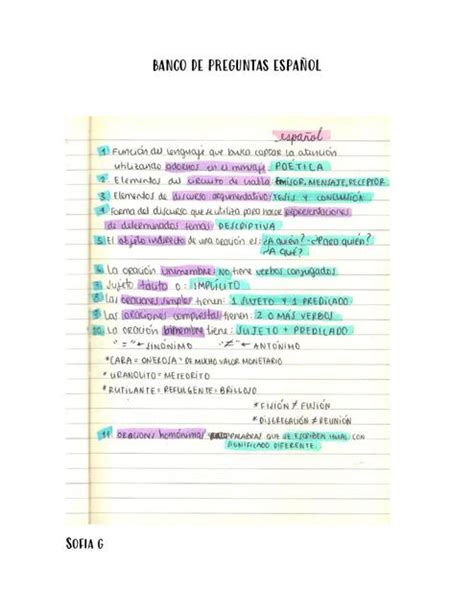 BANCO DE PREGUNTAS ESPAÑOL
español
1 Función del lenguaje que busca captar la atención
utilizando adornos en el mensaje: POÉTICA
2. Elementos del circuito de habla: EMISOR, MENSAJE, RECEPTOR
3 Elementos de discurso argumentativo: TESIS Y CONCLUSIÓN
4 Forma del discurso que se utiliza para hacer representaciones
de determinados temas: DESCRIPTIVA
5 El objeto indirecto de una oración es: ¿A quién? ¿Para quién?
¿A qué?
6 La oración unimembre: No tiene verbos conjugados.
7 Sujeto tácito o: IMPLÍCITO
8 Las oraciones simples tienen: 1 SUJETO Y 1 PREDICADO
9 Las oraciones compuestas tienen: 2 O MÁS VERBOS
10 La oración bimembre tiene: SUJETO + PREDICADO
"=" ← SINÓNIMO "≠" ← ANTÓNIMO
*CARA = ONEROSA = DE MUCHO VALOR MONETARIO
*URANOLITO = METEORITO
*RUTILANTE = REFULGENTE = BRILLOSO
*FISIÓN ≠ FUSIÓN
*DISGREGACIÓN ≠ REUNIÓN
11 oraciones homónimas PALABRAS QUE SE ESCRIBEN IGUAL CON
SIGNIFICADO DIFERENTE.
SOFIA G